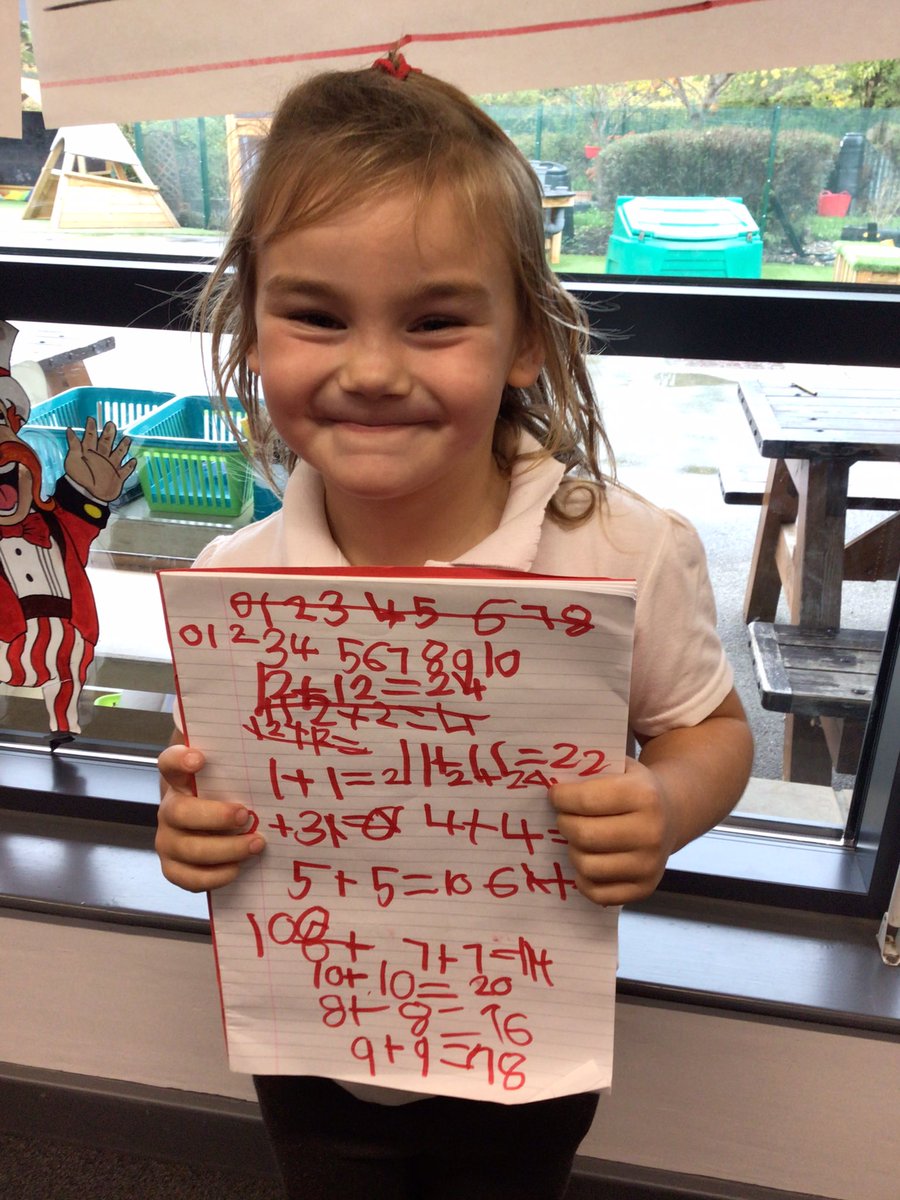 0 1 2 3 4 5 6 7 8
0 1 2 3 4 5 6 7 8 9 10
12+12=24
2+2=4
12+12=
1+1=2 11+11=22
+3=6 4+4=
5+5=10 6+
100 8+ 7+7=14
10+10=20
8+8=16
9+9=18